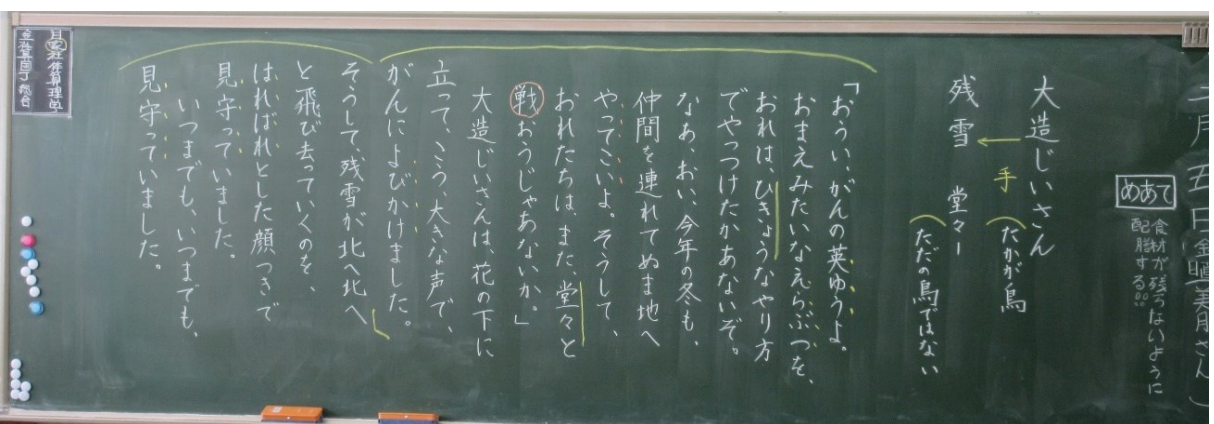 二月五日(金曜
めあて
食材が残らないように
配膳する。
大造じいさん
手
たかが鳥
残雪 堂々
ただの鳥ではない
「おうい、がんの英ゆうよ。
おまえみたいなえらぶつを、
おれは、ひきょうなやり方
でやっつけたかあないぞ。
なあ、おい、今年の冬も、
仲間を連れてぬま地へ
やってこいよ。そうして、
おれたちは、また、堂々と
戦おうじゃあないか。」
大造じいさんは、花の下に
立って、こう、大きな声で、
がんによびかけました。
そうして、残雪が北へ北へ
と飛び去っていくのを、
はればれとした顔つきで
見守っていました。
いつまでも、いつまでも、
見守っていました。